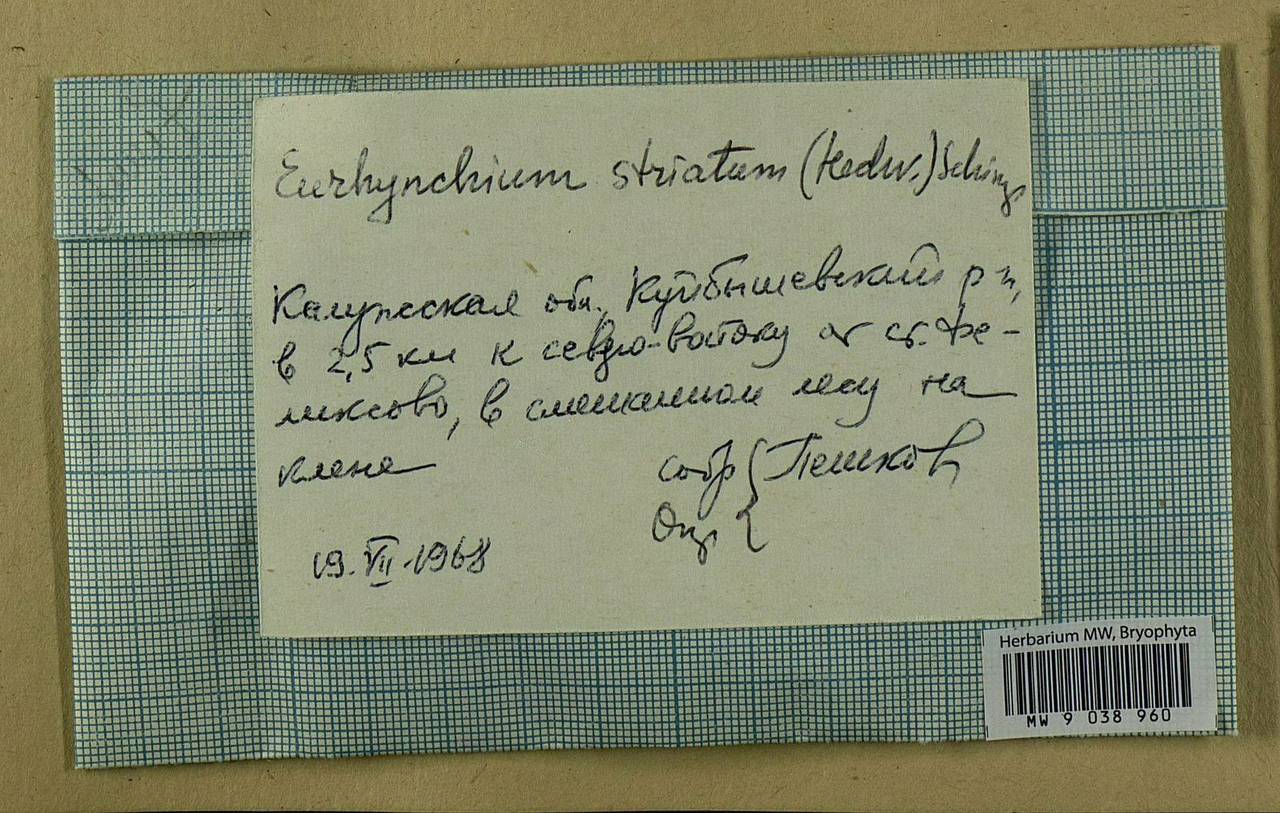 Eurhynchium striatum (Hedw.) Schimp
Калужская обл., Куйбышевский р-н,
в 2,5 км к северо-востоку от ст. Фе-
ликсово, в смешанном лесу на
клене
собр { Пешков
Опр {
19.VII.1968
Herbarium MW, Bryophyta
MW 9 038 960